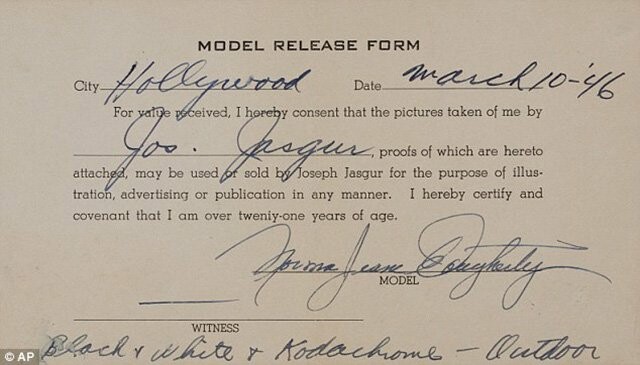 MODEL RELEASE FORM
City Hollywood Date march 10-'46
For value received, I hereby consent that the pictures taken of me by
Jos. Jasgur, proofs of which are hereto
attached, may be used or sold by Joseph Jasgur for the purpose of illus-
tration, advertising or publication in any manner. I hereby certify and
covenant that I am over twenty-one years of age.
Norma Jean Dougherty
MODEL
WITNESS
Black & White & Kodachrome - Outdoor
© AP